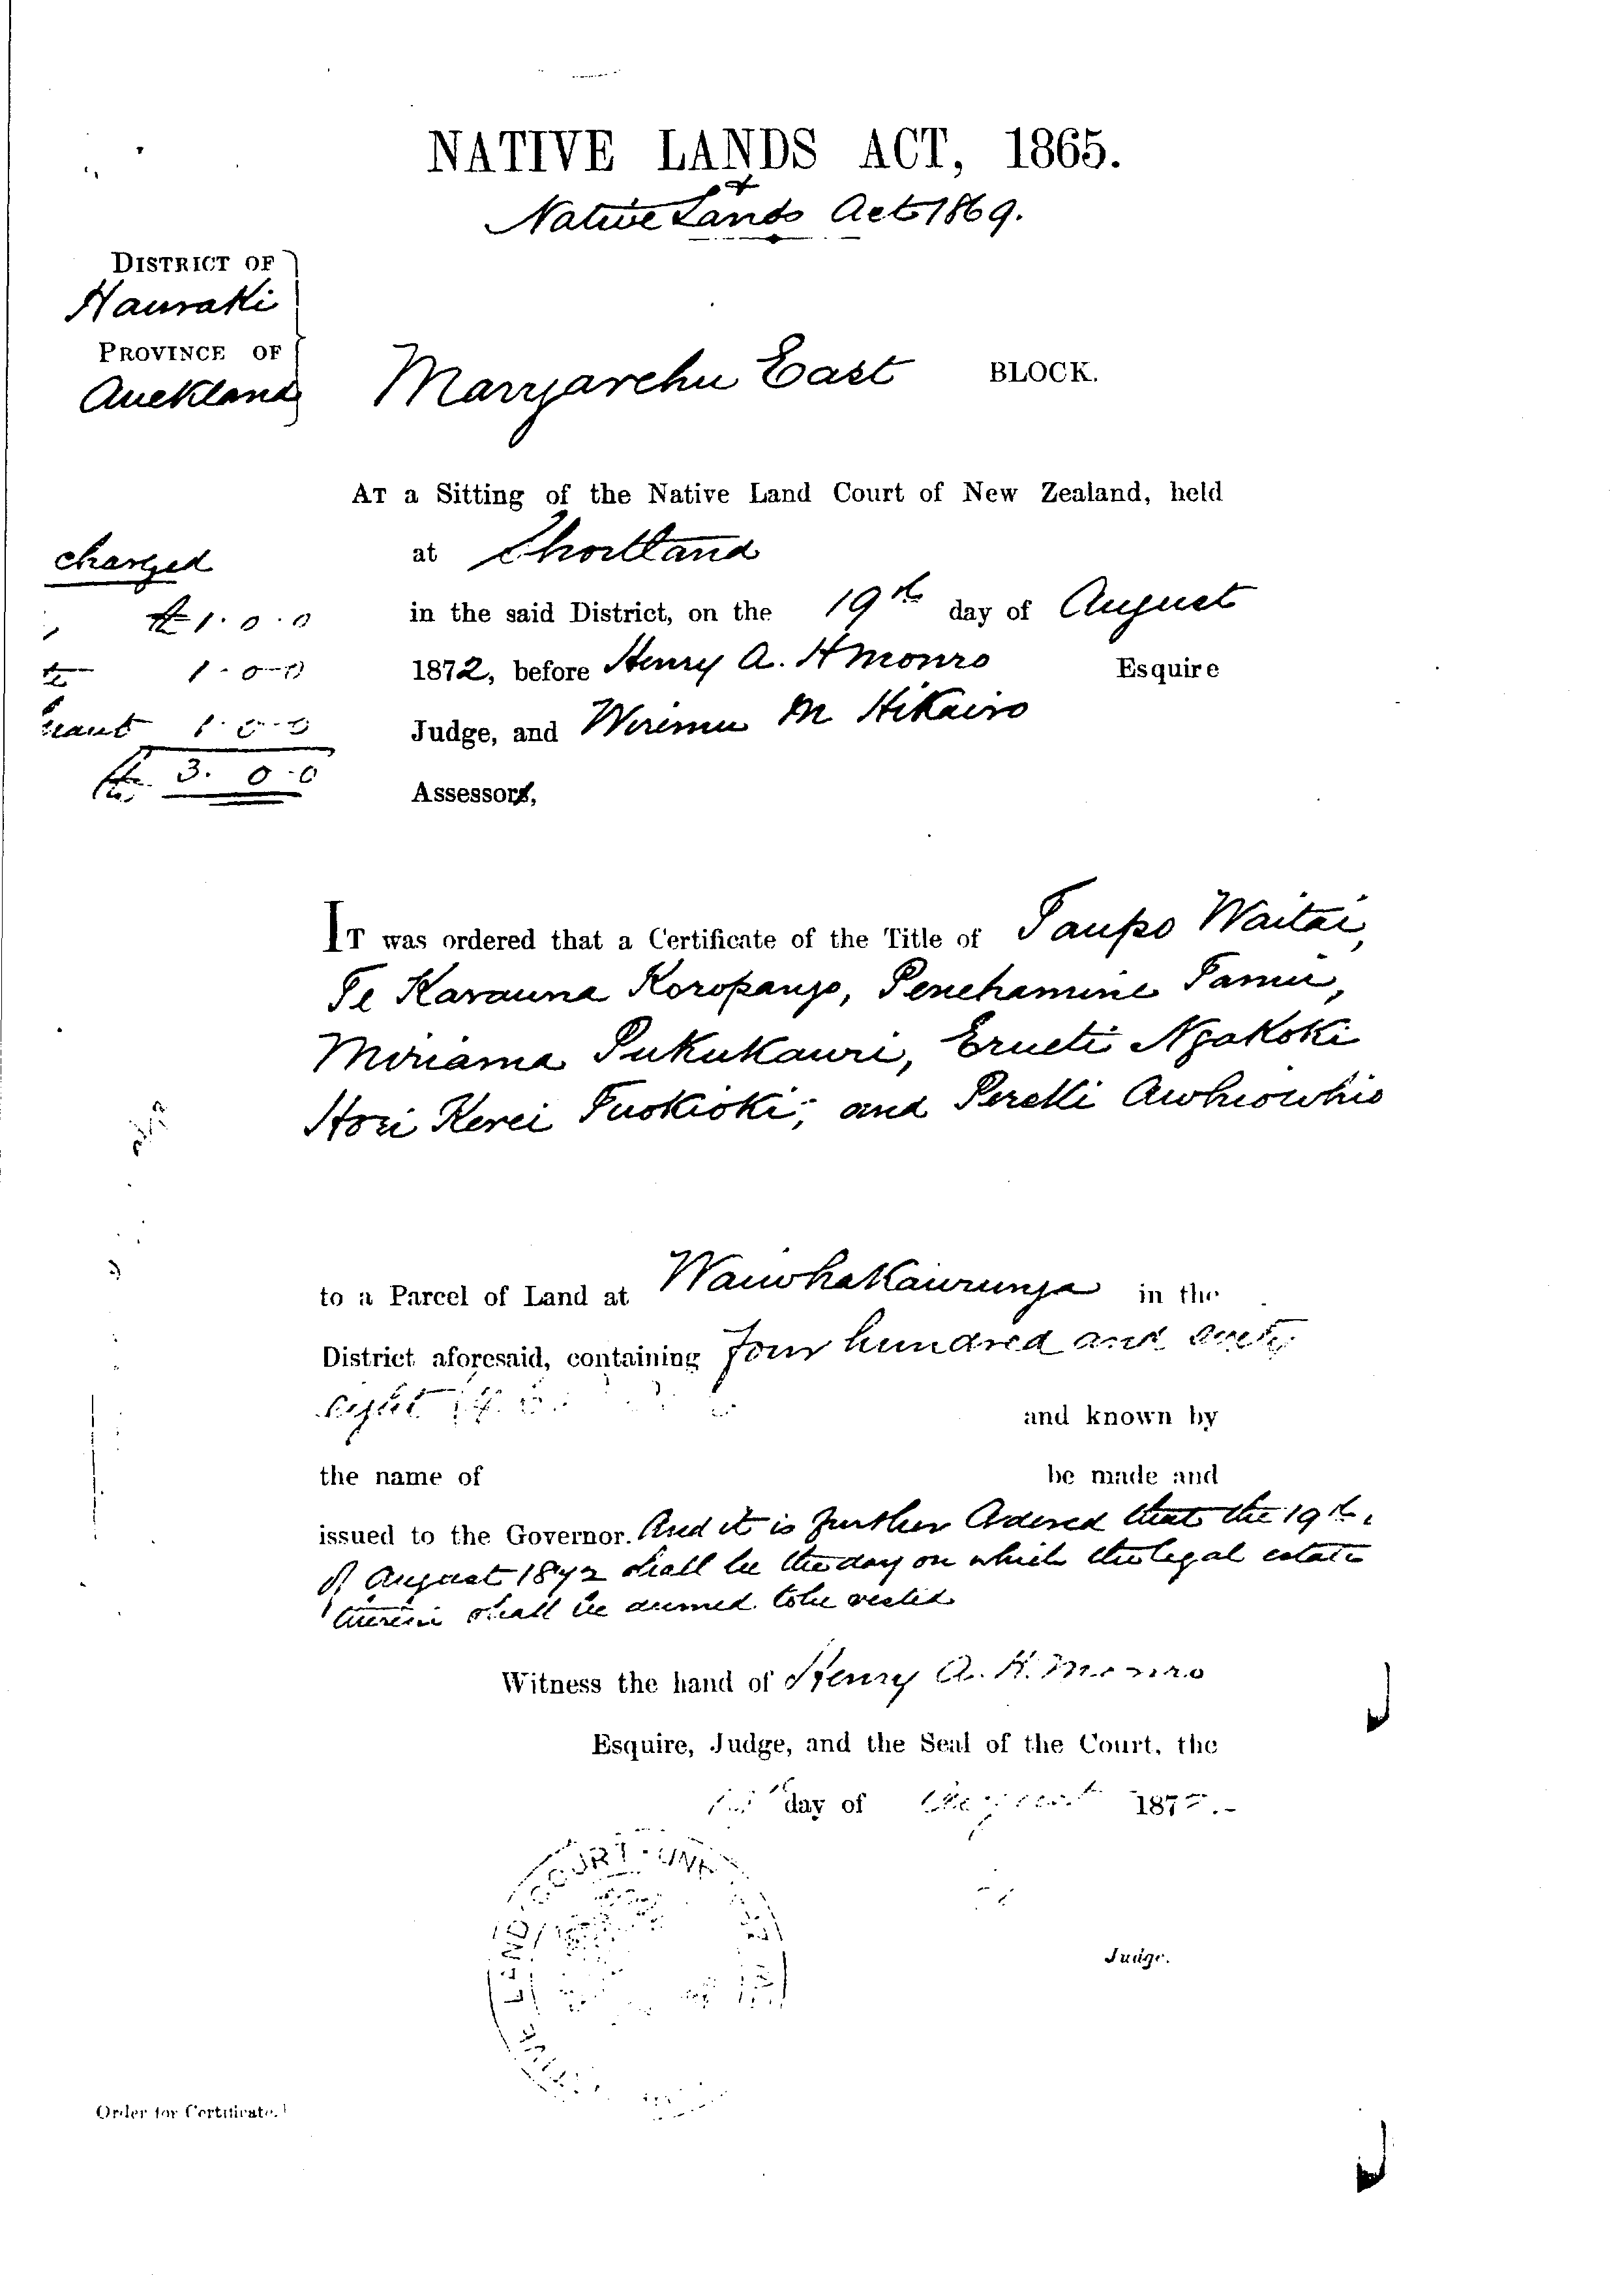 NATIVE LANDS ACT, 1865.
&
Native Lands Act 1869.
DISTRICT OF
Hauraki
PROVINCE OF
Auckland
Mangarehu East BLOCK.
AT a Sitting of the Native Land Court of New Zealand, held
at Shortland
in the said District, on the 19th day of August
1872, before Henry A. H Monro Esquire
Judge, and Wiremu M Hikairo
Assessors,
charged
£1.0.0
1-0-0
1.0-0
£3.0.0
IT was ordered that a Certificate of the Title of Taupo Waitai,
Te Karauna Koropango, Penehamine Tamui,
Miriama Pukukauri, Erueti Ngakoki
Hori Kerei Tuokioki; and Pereki Awhiowhio
to a Parcel of Land at Waiwhakaurunga in the
District aforesaid, containing Four hundred and
eight and known by
the name of be made and
issued to the Governor. And it is further Ordered that the 19th
of August 1872 shall be the day on which the legal estate
therein shall be deemed to be vested
Witness the hand of Henry A. H. Monro
Esquire, Judge, and the Seal of the Court, the
day of August 187
COURT
LAND
Judge.
Order for Certificate.